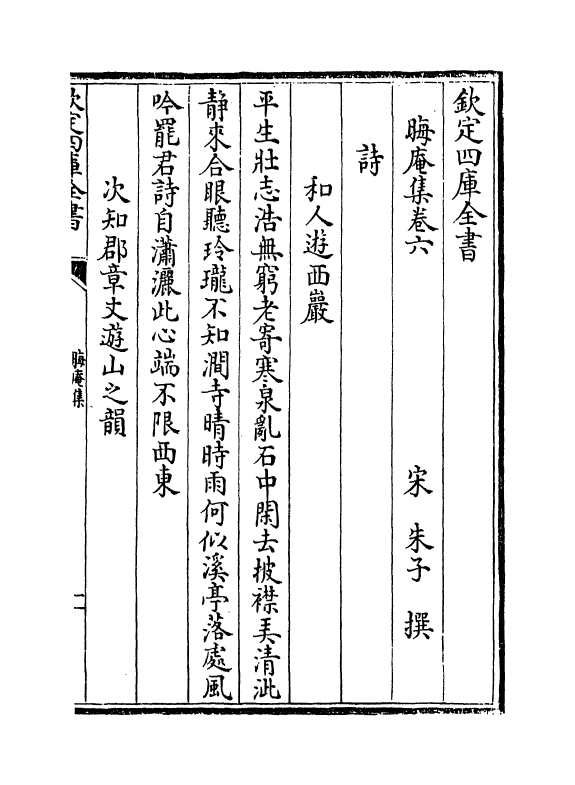 欽定四庫全書
晦庵集卷六　宋　朱子　撰
詩
和人遊西巖
平生壯志浩無窮老寄寒泉亂石中閑去披襟弄清泚
静來合眼聽玲瓏不知澗寺晴時雨何似溪亭落處風
吟罷君詩自瀟灑此心端不限西東
次知郡章丈遊山之韻
欽定四庫全書
晦庵集